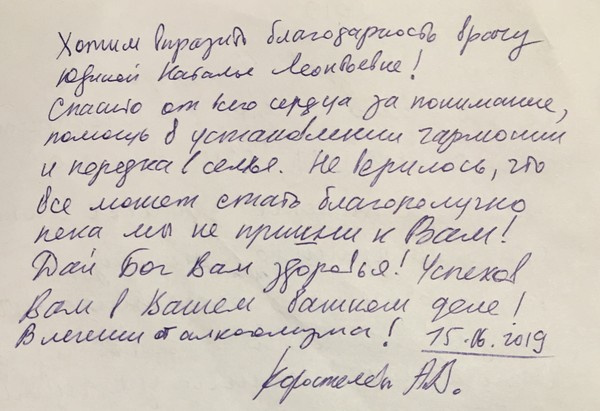 Хотим выразить благодарность врачу
Юдиной Наталье Леонтьевне!
Спасибо от всего сердца за понимание,
помощь в установлении гармонии
и порядка в семье. Не верилось, что
все может стать благополучно
пока мы не пришли к Вам!
Дай Бог Вам здоровья! Успехов
Вам в Вашем деле!
В лечении от алкоголизма! 15.06.2019
Коростелевы А.В.